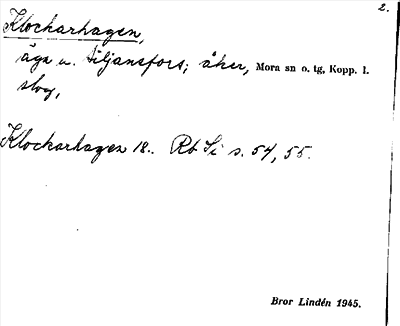 2.
Klockarhagen,
äga u. Siljansfors; åker, Mora sn o. tg, Kopp. l.
slog,
Klockarhagen 18.. Rb Si s. 54, 55.
Bror Lindén 1945.